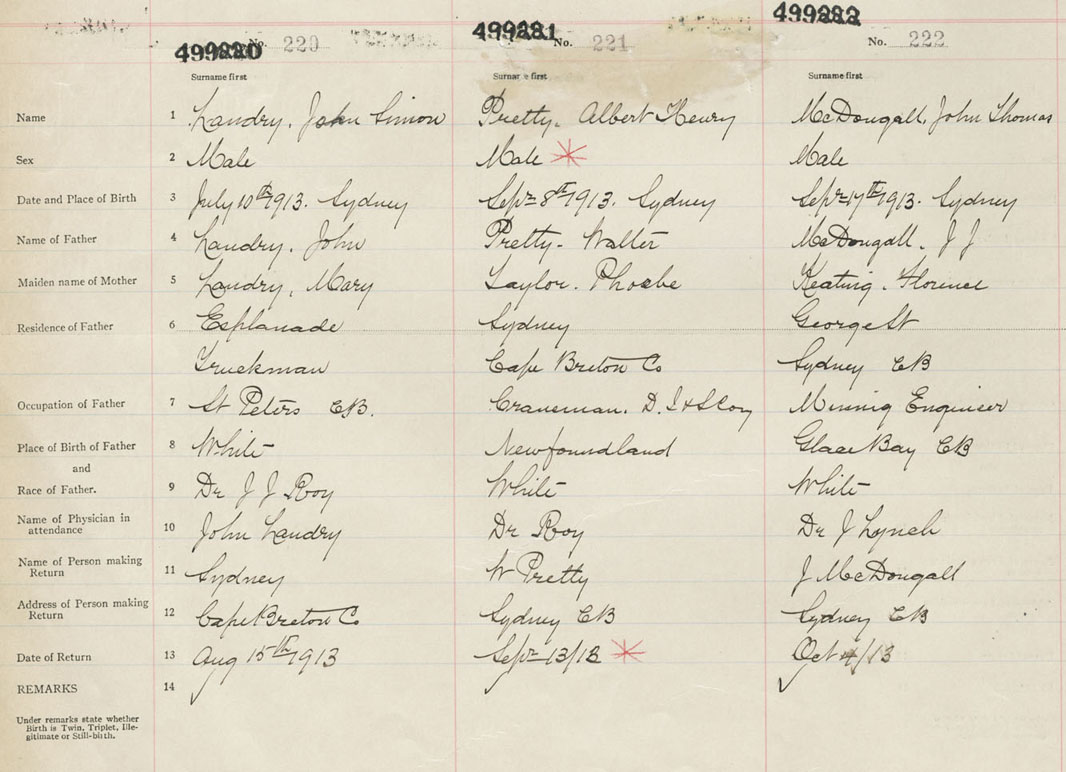 499220 No. 220
499221 No. 221
499222 No. 222
Surname first Surname first Surname first
Name 1 Landry, John Simon Pretty, Albert Henry McDougall, John Thomas
Sex 2 Male Male Male
Date and Place of Birth 3 July 10th 1913. Sydney Sepr 8th 1913. Sydney Sepr 17th 1913. Sydney
Name of Father 4 Landry, John Pretty - Walter McDougall. J J
Maiden name of Mother 5 Landry, Mary Taylor. Phoebe Keating. Florence
Residence of Father 6 Esplanade Sydney George St
Truckman Cape Breton Co Sydney CB
Occupation of Father 7 St Peters CB. Craneman. D. I & S Coy Mining Engineer
Place of Birth of Father 8 White Newfoundland Glace Bay CB
and
Race of Father. 9 Dr J J Roy White White
Name of Physician in
attendance 10 John Landry Dr Roy Dr J Lynch
Name of Person making
Return 11 Sydney W Pretty J McDougall
Address of Person making
Return 12 Cape Breton Co Sydney CB Sydney CB
Date of Return 13 Aug 15th 1913 Sepr 13/13 Oct 4/13
REMARKS 14
Under remarks state whether
Birth is Twin, Triplet, Ille-
gitimate or Still-birth.